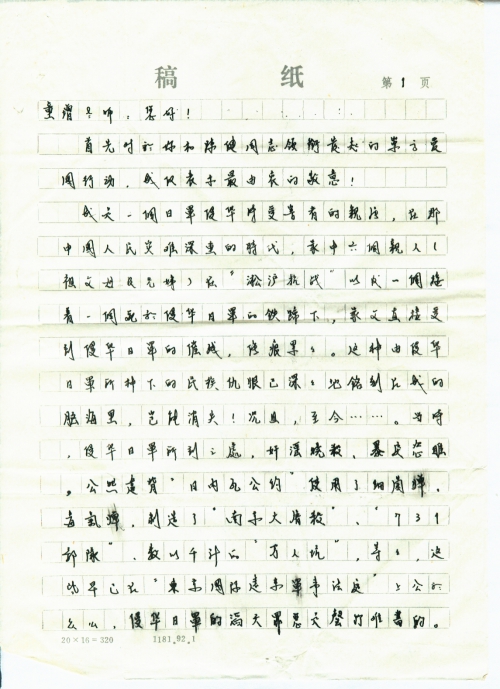 稿 纸
第 1 页
重增师：您好！
首先对於你和陈健同志领衔发起的索方爱
国行动，我仅表示最由衷的敬意！
我是一個日軍侵华時受害者的親溽，在那
中國人民災难深重的時代，家中六個親人（
祖父母及兄妹）在“淞沪抗战”以戍一個接
着一個死於侵华日軍的铁蹄下，家父直接受
到侵华日軍的催残，傷痕累々。这种由侵华
日軍所种下的民族仇恨已深々地铭刻在我的
脑海里，岂能消失！况且，至今……。当時
，侵华日軍所到之處，奸淫烧殺，暴戾恣睢
。公然違背“日内瓦公约”使用了细菌弹，
毒氣弹，制造了“南京大屠殺”、“731
部隊”、數以千计的“万人坑”，等々，这
些早已在“東京國际遠東軍事法庭”上公
，侵华日軍的滔天罪恶是罄竹难書的。
20×16=320 1181.92.1